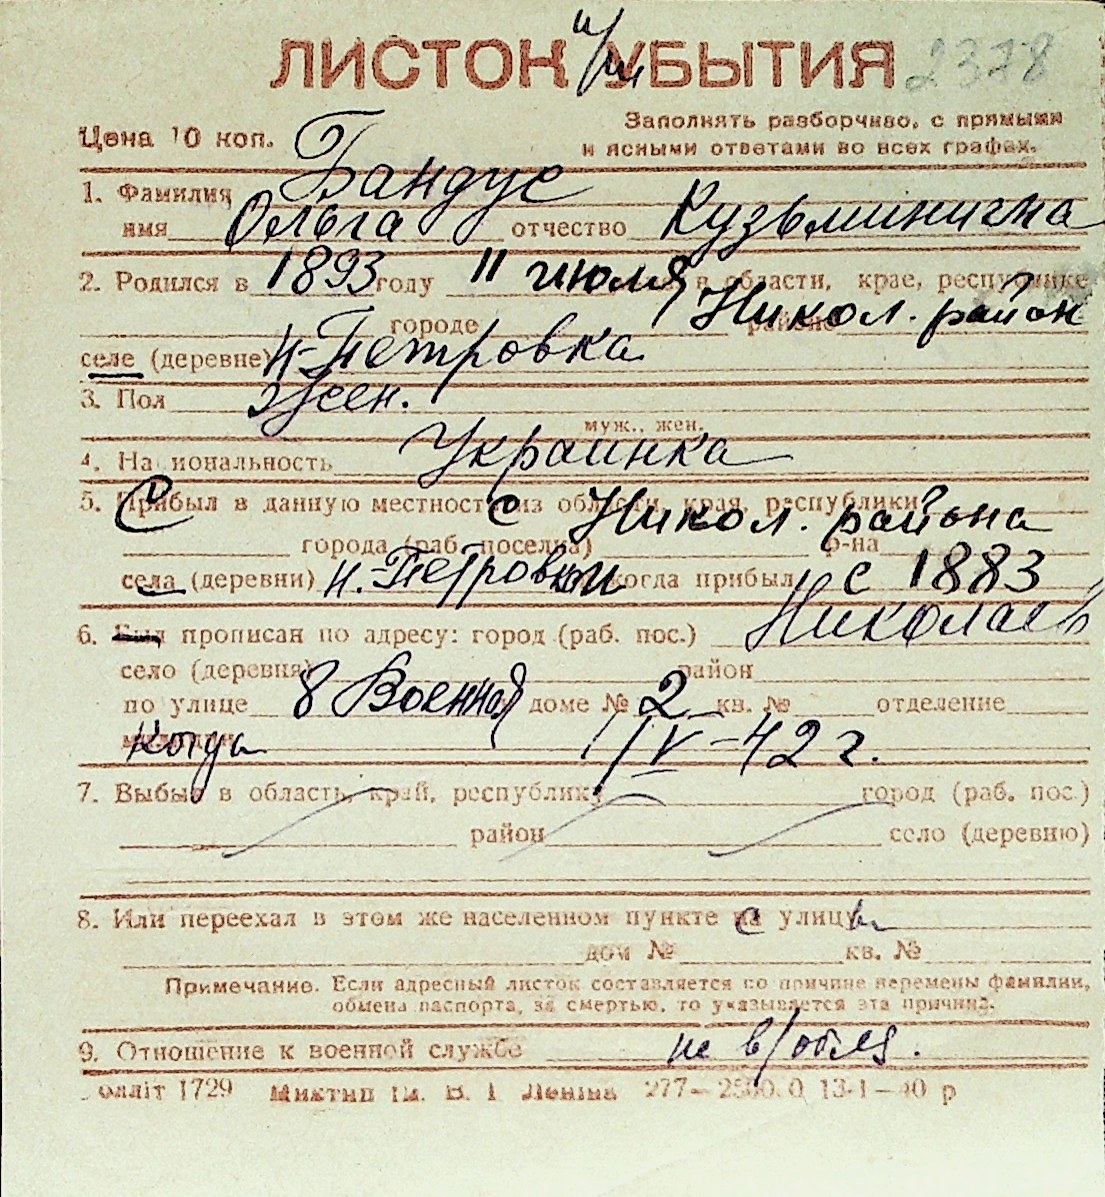 ЛИСТОК УБЫТИЯ 2378
Цена 10 коп.
Заполнять разборчиво, с прямыми
и ясными ответами во всех графах.
1. Фамилия Бандус
имя Ольга отчество Кузьминична
2. Родился в 1893 году 11 июля в области, крае, республике
городе районе Никол. район
селе (деревне) Н-Петровка
3. Пол Жен.
муж., жен.
4. Национальность Украинка
5. Прибыл в данную местность из области, края, республики
С с Никол. района
города (раб. поселка) р-на
села (деревни) Н.-Петровки когда прибыл с 1883
6. Был прописан по адресу: город (раб. пос.) Николаев
село (деревня) район
по улице 8 Военная доме № 2 кв. № отделение
когда IV-42 г.
7. Выбыл в область, край, республику город (раб. пос.)
район село (деревню)
8. Или переехал в этом же населенном пункте на улицу
дом № кв. №
Примечание. Если адресный листок составляется по причине перемены фамилии,
обмена паспорта, за смертью, то указывается эта причина.
9. Отношение к военной службе не в/обяз.
1729 им. В. І. Леніна 13-1-40 р